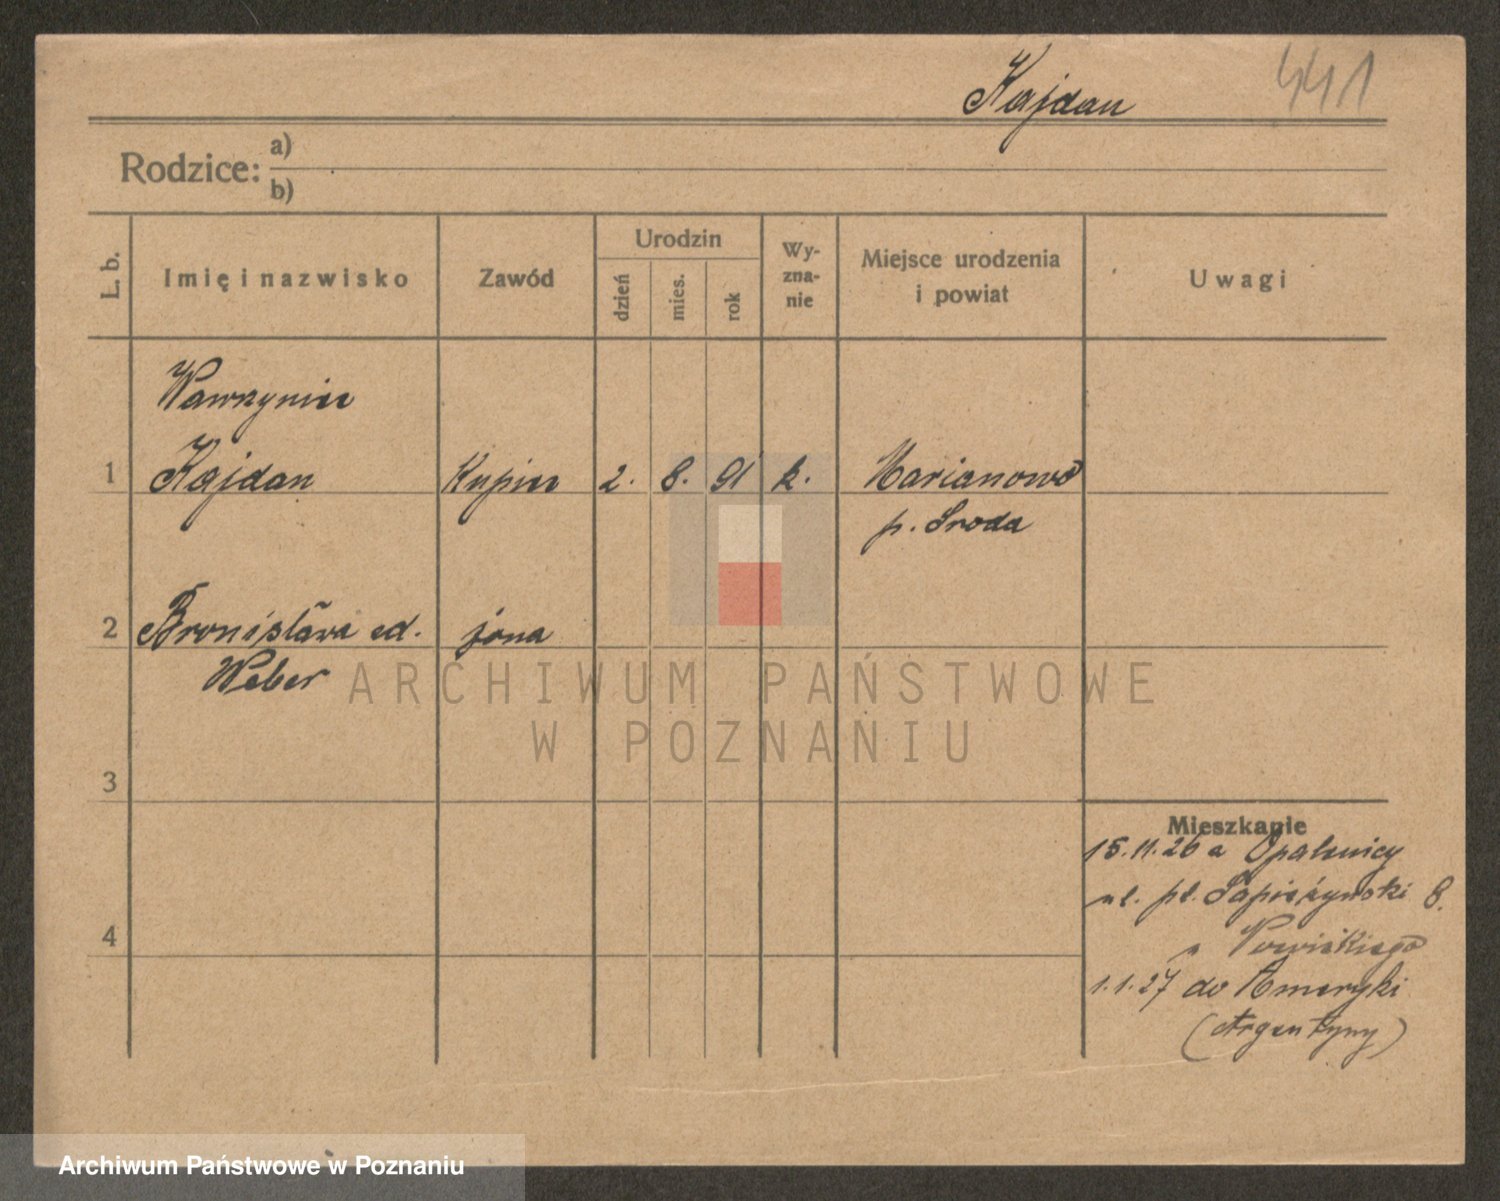 Kajdan
441
Rodzice: a)
b)
L. b.
Imię i nazwisko
Zawód
Urodzin
dzień
mies.
rok
Wy-
zna-
nie
Miejsce urodzenia
i powiat
Uwagi
Wawrzyniec
1 Kajdan Kupiec 2. 8. 91 k. Marianowo
p. Środa
2 Bronisława żona
Weber
3
4
Mieszkanie
15.11.26 Opalenicy
ul. pl. Sapieżyński 8.
1.1.27 do Ameryki
(Argentyny)
ARCHIWUM PAŃSTWOWE
W POZNANIU
Archiwum Państwowe w Poznaniu